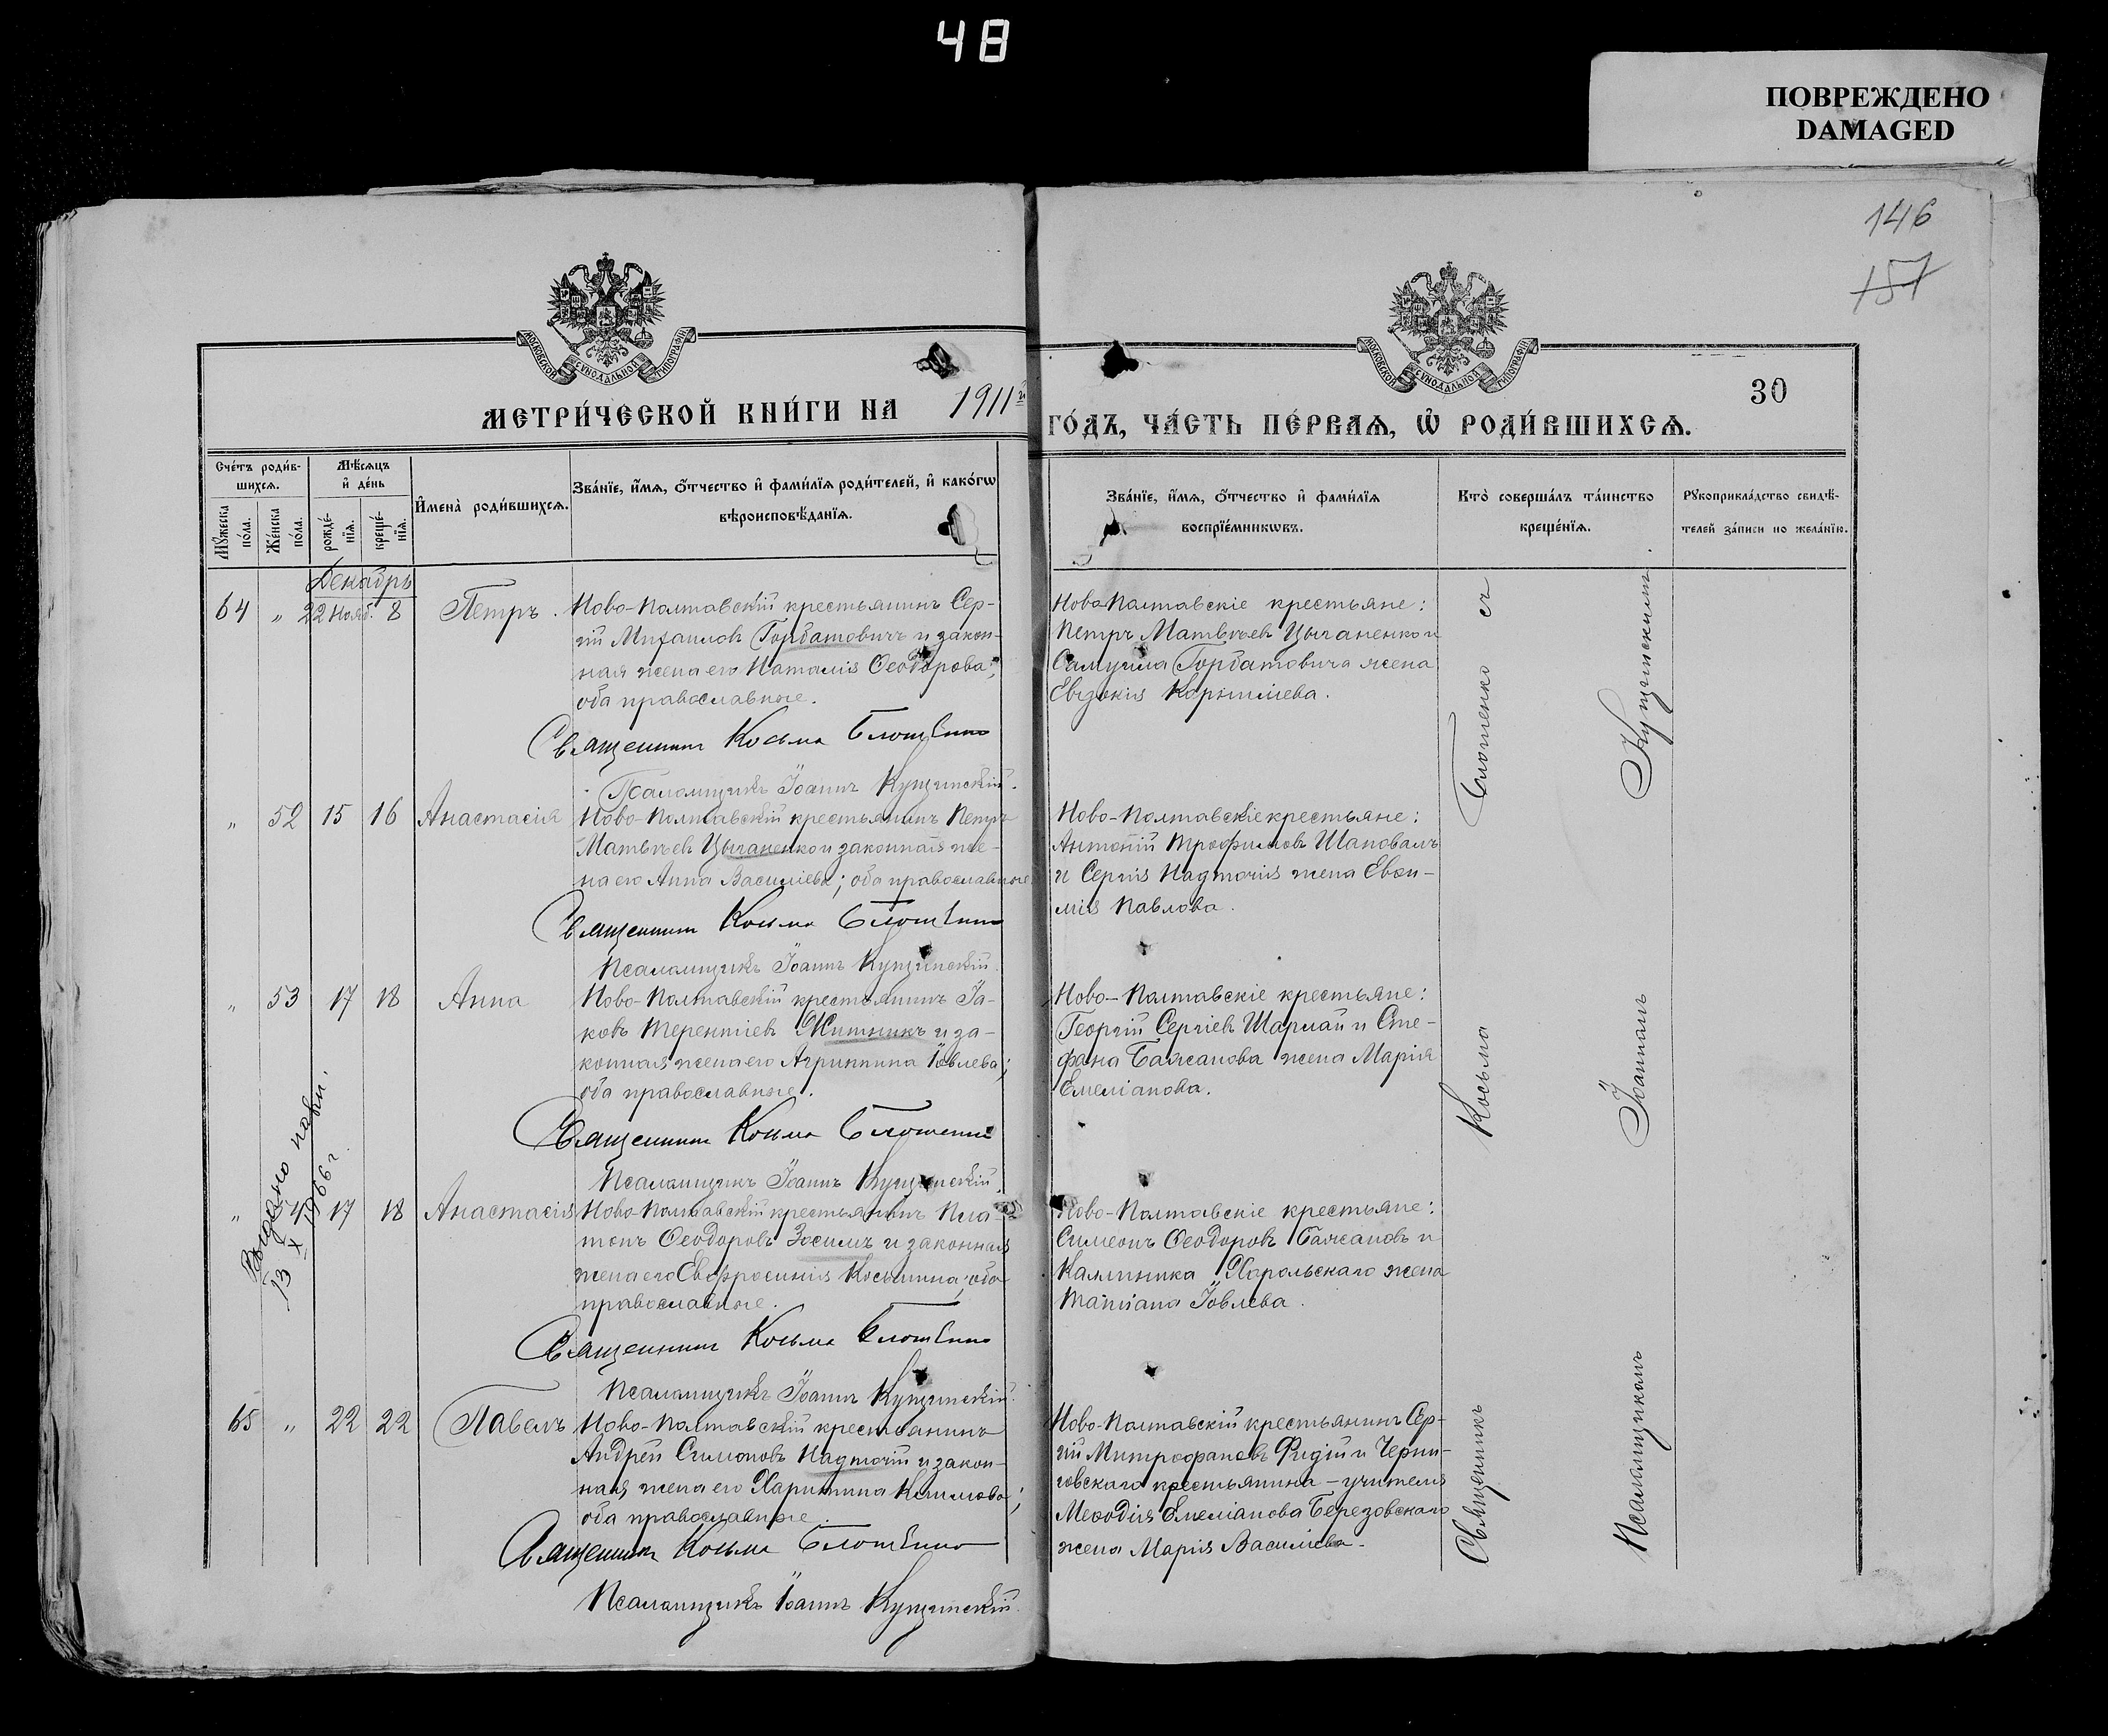 48
ПОВРЕЖДЕНО
DAMAGED
146
157
МОСКОВСКОЙ СѴНОДАЛЬНОЙ ТИПОГРАФІИ
МОСКОВСКОЙ СѴНОДАЛЬНОЙ ТИПОГРАФІИ
30
МЕТРИ́ЧЕСКОЙ КНИ́ГИ НА 1911й
ГО́ДЪ, ЧА́СТЬ ПЕ́РВАѦ, Ѡ҆ РОДИ́ВШИХСѦ.
Сче́тъ роди́в-
шихсѧ.
Мꙋ́жеска
по́ла.
Же́нска
по́ла.
Мѣ́сѧцъ
и҆ де́нь
рожде́-
нїѧ.
креще́-
нїѧ.
И҆мена̀ роди́вшихсѧ.
Зва́нїе, и҆́мѧ, ѻ҆́тчество и҆ фами́лїѧ роди́телей, и҆ како́гѡ
вѣроисповѣ́данїѧ.
Зва́нїе, и҆́мѧ, ѻ҆́тчество и҆ фами́лїѧ
воспрїе́мникѡвъ.
Кто̀ соверша́лъ та́инство
креще́нїѧ.
Рꙋкоприкла́дство свидѣ́-
телей за́писи по жела́нїю.
Декабрь
64 " 22 Нояб. 8 Петръ.
Ново-Полтавскій крестьянинъ Сер-
гій Михаиловъ Горбатовичъ и закон-
ная жена его Наталія Ѳеодорова;
оба православные.
Священникъ Косьма Блошенко
Псаломщикъ Іоаннъ Кущинскій.
Ново-Полтавскіе крестьяне:
Петръ Матвѣевъ Цыганенко и
Самуила Горбатовича жена
Евдокія Корниліева.
" 52 15 16 Анастасія
Ново-Полтавскій крестьянинъ Петръ
Матвѣевъ Цыганенко и законная же-
на его Анна Василіева; оба православные
Священникъ Косьма Блошенко
Псаломщикъ Іоаннъ Кущинскій.
Ново-Полтавскіе крестьяне:
Антоній Трофимовъ Шаповалъ
и Сергія Надточія жена Евѳи-
мія Павлова.
" 53 17 18 Анна
Ново-Полтавскій крестьянинъ Іа-
ковъ Терентіевъ Житникъ и за-
конная жена его Агриппина Іовлева;
оба православные.
Священникъ Косьма Блошенко
Псаломщикъ Іоаннъ Кущинскій.
Ново-Полтавскіе крестьяне:
Георгій Сергіевъ Шарлай и Сте-
фана Бажанова жена Марія
Емеліанова.
Выдано повт.
13 X 1966 г.
" 54 17 18 Анастасія
Ново-Полтавскій крестьянинъ Пла-
тонъ Ѳеодоровъ Зосимъ и законная
жена его Евфросинія Косьмина; оба
православные.
Священникъ Косьма Блошенко
Псаломщикъ Іоаннъ Кущинскій.
Ново-Полтавскіе крестьяне:
Симеонъ Ѳеодоровъ Бажановъ и
Каллиника Харольскаго жена
Татіана Іовлева.
65 " 22 22 Павелъ
Ново-Полтавскій крестьянинъ
Андрей Симоновъ Надточій и закон-
ная жена его Харитина Климова;
оба православные.
Священникъ Косьма Блошенко
Псаломщикъ Іоаннъ Кущинскій.
Ново-Полтавскій крестьянинъ Сер-
гій Митрофановъ Фидій и Черни-
говскаго крестьянина-учителя
Меѳодія Емеліанова Березовскаго
жена Марія Василіева.
Священникъ Косьма Блошенко съ
Псаломщикомъ Іоанномъ Кущинскимъ.